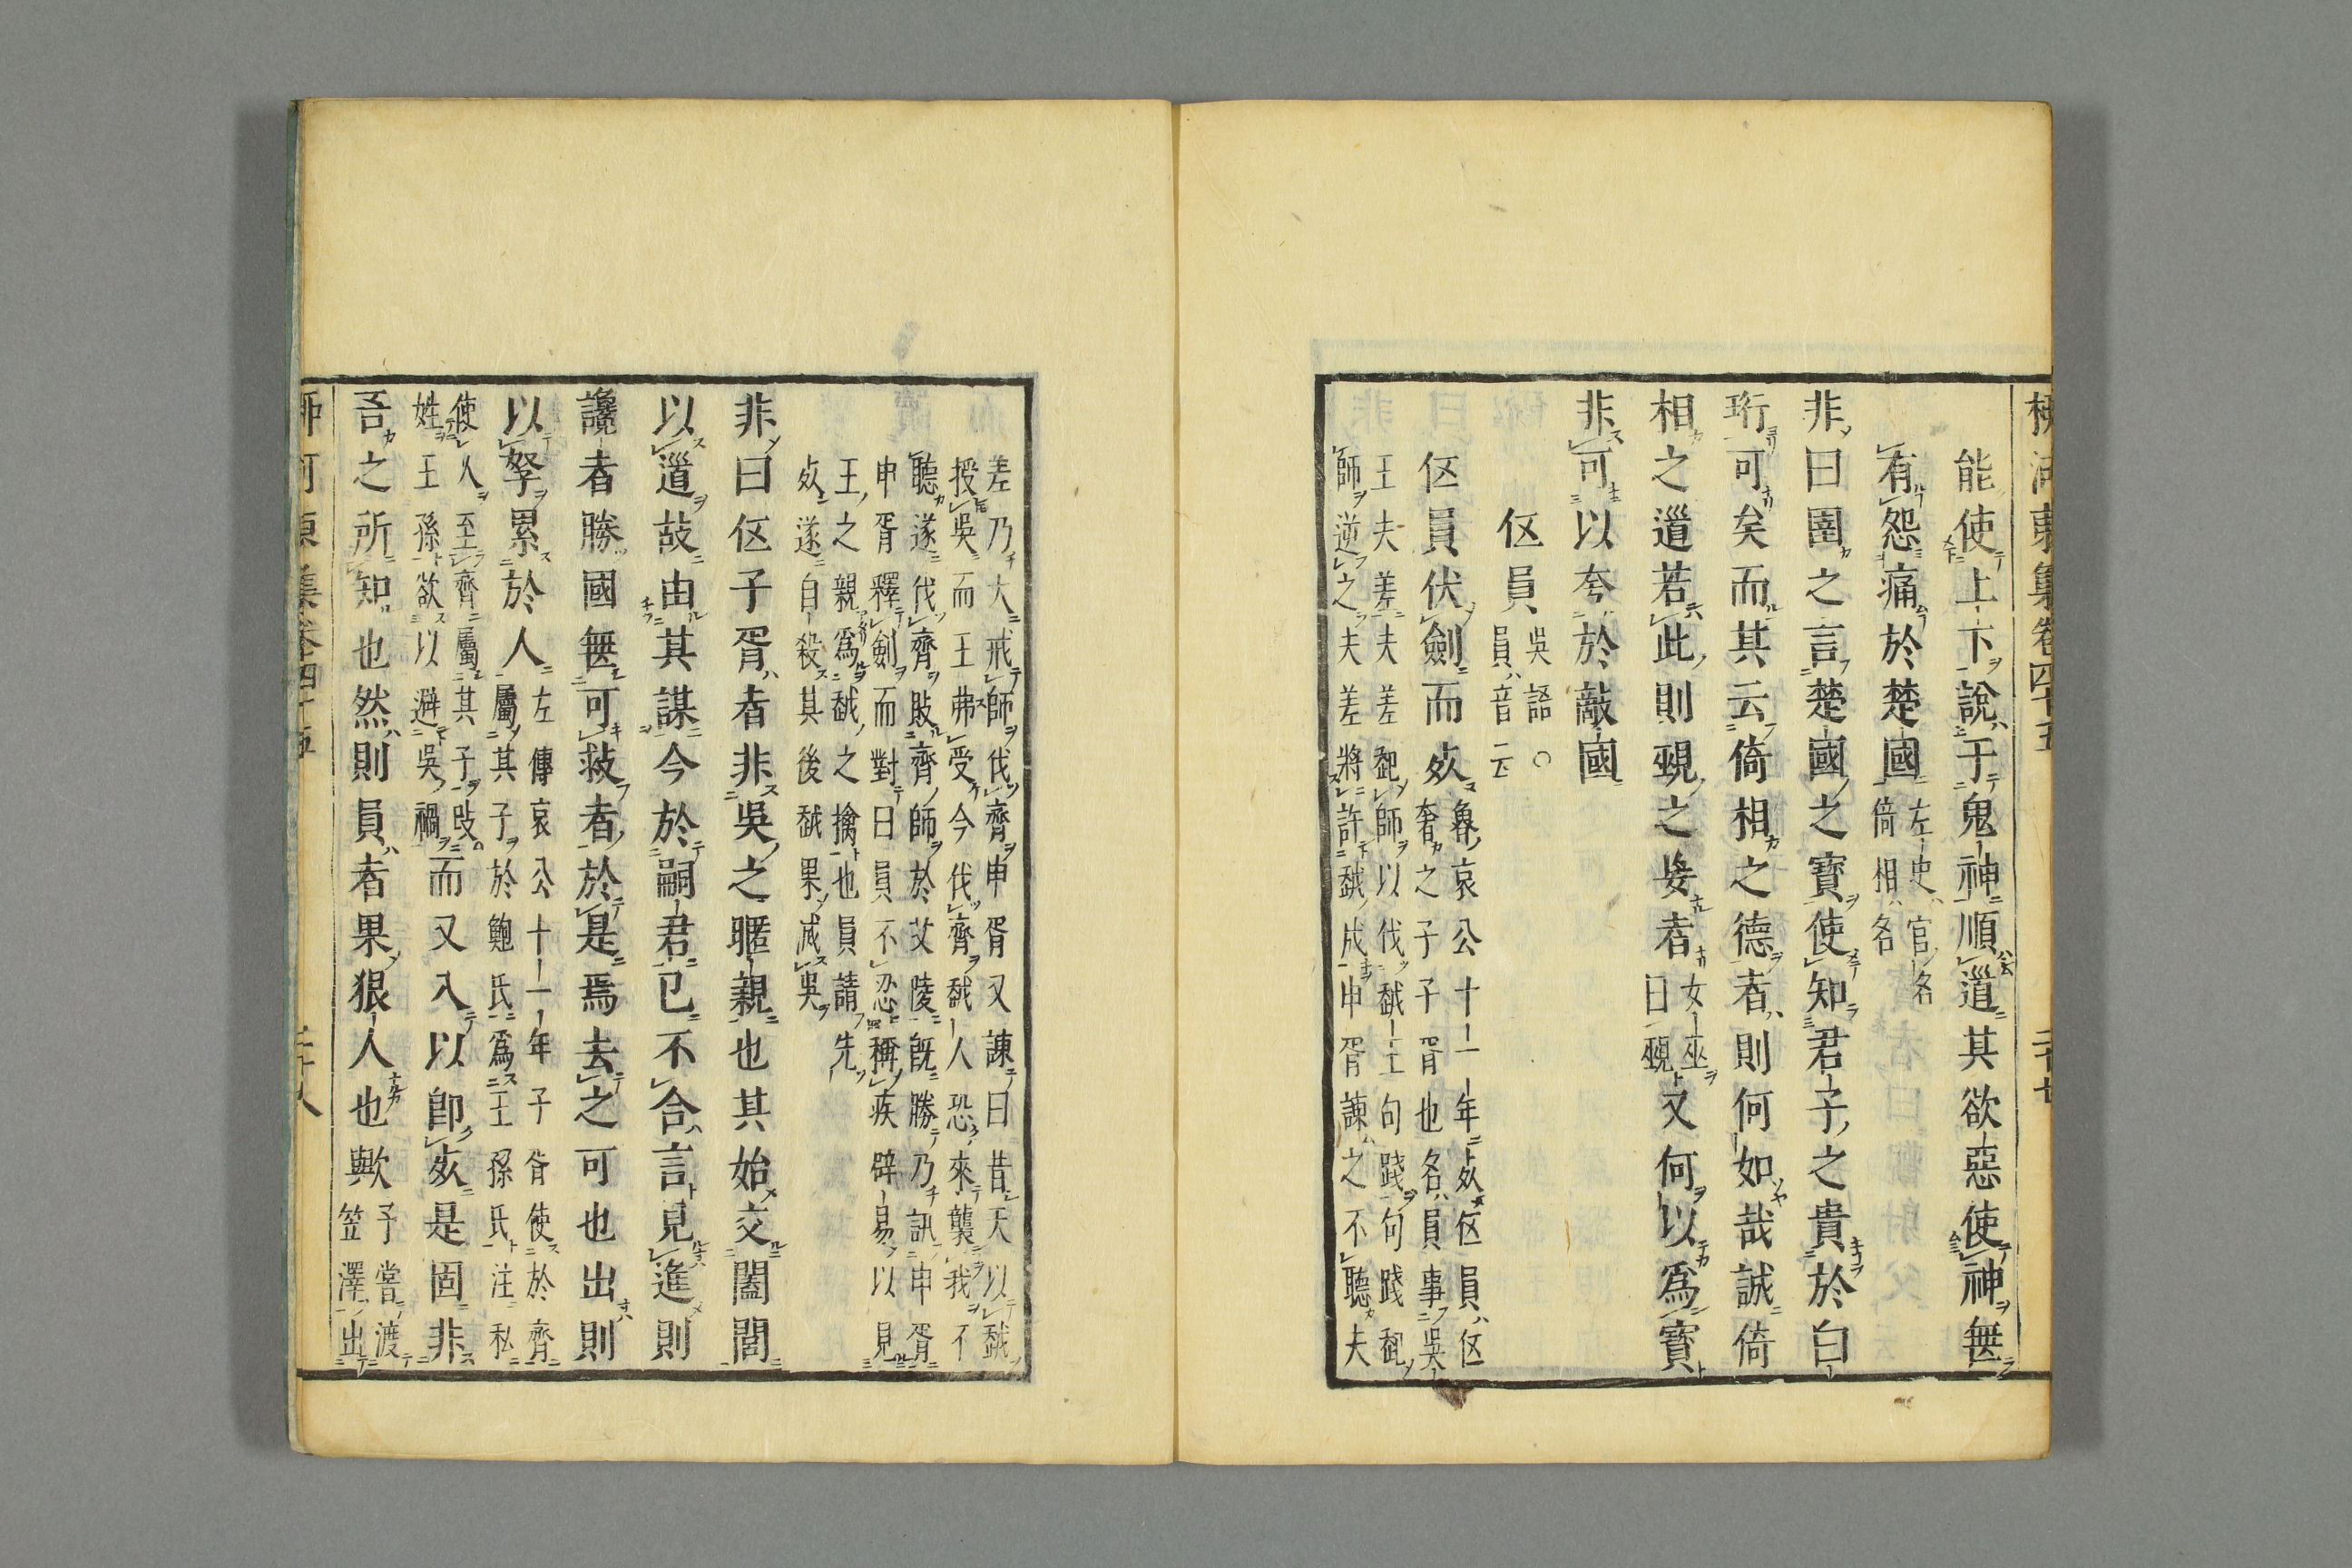 柳河東集卷四十五　二十七
能使上下說于鬼神順道其欲惡使神無
有怨痛於楚國
左史官名
倚相名
非曰圉之言楚國之寳使知君子之貴於白
珩可矣而其云倚相之德者則何如哉誠倚
相之道若此則覡之妄者
女巫
曰覡
又何以爲寳
非可以夸於敵國
伍員
吳語○
員音云
伍員伏劍而死
魯哀公十一年死伍員伍
奢之子子胥也名員事吳
王夫差夫差起師以伐越王句踐句踐起
師逆之夫差將許越成申胥諫之不聽夫
差乃大戒師伐齊申胥又諫曰昔天以越
授吳而王弗受今伐齊越人恐來襲我不
聽遂伐齊敗齊師於艾陵旣勝乃訊申胥
申胥釋劍而對曰員不忍稱疾辟易以見
王之親爲越之擒也員請先
死遂自殺其後越果滅吳
非曰伍子胥者非吳之暱親也其始交闔閭
以道故由其謀今於嗣君已不合言見進則
讒者勝國無可救者於是焉去之可也出則
以孥累於人
左傳哀公十一年子胥使於齊
屬其子於鮑氏爲王孫氏注私
使人至齊屬其子改
姓王孫欲以避吳禍
而又入以卽死是固非
吾之所知也然則員者果狠人也歟
子嘗渡
笠澤出
柳河東集卷四十五　二十八